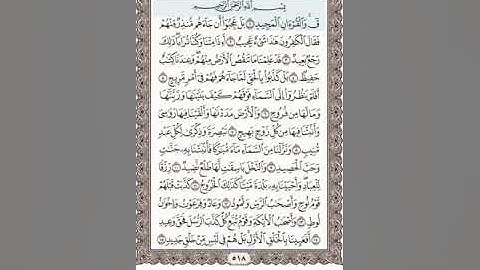 بِسْمِ اللَّهِ الرَّحْمَٰنِ الرَّحِيمِ
قٓ ۚ وَالْقُرْءَانِ الْمَجِيدِ ١ بَلْ عَجِبُوٓا۟ أَن جَآءَهُم مُّنذِرٌ مِّنْهُمْ
فَقَالَ الْكَٰفِرُونَ هَٰذَا شَىْءٌ عَجِيبٌ ٢ أَءِذَا مِتْنَا وَكُنَّا تُرَابًا ۖ ذَٰلِكَ
رَجْعٌۢ بَعِيدٌ ٣ قَدْ عَلِمْنَا مَا تَنقُصُ الْأَرْضُ مِنْهُمْ ۖ وَعِندَنَا كِتَٰبٌ
حَفِيظٌۢ ٤ بَلْ كَذَّبُوا۟ بِالْحَقِّ لَمَّا جَآءَهُمْ فَهُمْ فِىٓ أَمْرٍ مَّرِيجٍ ٥
أَفَلَمْ يَنظُرُوٓا۟ إِلَى السَّمَآءِ فَوْقَهُمْ كَيْفَ بَنَيْنَٰهَا وَزَيَّنَّٰهَا
وَمَا لَهَا مِن فُرُوجٍ ٦ وَالْأَرْضَ مَدَدْنَٰهَا وَأَلْقَيْنَا فِيهَا رَوَٰسِىَ
وَأَنۢبَتْنَا فِيهَا مِن كُلِّ زَوْجٍۭ بَهِيجٍ ٧ تَبْصِرَةً وَذِكْرَىٰ لِكُلِّ عَبْدٍ
مُّنِيبٍ ٨ وَنَزَّلْنَا مِنَ السَّمَآءِ مَآءً مُّبَٰرَكًا فَأَنۢبَتْنَا بِهِۦ جَنَّٰتٍ
وَحَبَّ الْحَصِيدِ ٩ وَالنَّخْلَ بَاسِقَٰتٍ لَّهَا طَلْعٌ نَّضِيدٌ ١٠ رِّزْقًا
لِّلْعِبَادِ ۖ وَأَحْيَيْنَا بِهِۦ بَلْدَةً مَّيْتًا ۚ كَذَٰلِكَ الْخُرُوجُ ١١ كَذَّبَتْ قَبْلَهُمْ
قَوْمُ نُوحٍ وَأَصْحَٰبُ الرَّسِّ وَثَمُودُ ١٢ وَعَادٌ وَفِرْعَوْنُ وَإِخْوَٰنُ
لُوطٍ ١٣ وَأَصْحَٰبُ الْأَيْكَةِ وَقَوْمُ تُبَّعٍ ۚ كُلٌّ كَذَّبَ الرُّسُلَ فَحَقَّ وَعِيدِ
١٤ أَفَعَيِينَا بِالْخَلْقِ الْأَوَّلِ ۚ بَلْ هُمْ فِى لَبْسٍ مِّنْ خَلْقٍ جَدِيدٍ ١٥
٥١٨